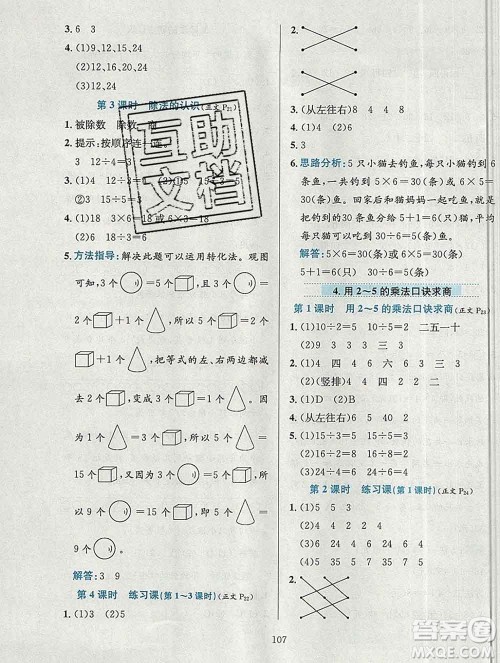 3. 6 3
4. (1)9,12,15,24
(2)12,16,20,24
(3)12 24
第 3 课时 除法的认识(正文 P21)
1. 被除数 除数 商
2. 提示:按顺序连
3. (1)① 3 12÷4=3 12÷3=4
②3 15÷3=
4. (1)18 3×6=18 或 6×3=18
(2)
5. 方法指导:解决此题可以运用转化法。观图
可知:1 个 = 3 个
2 个 +1 个 =15 个
3 个 +1 个
+2 个 ,把等式的左、右两边同时
减去 2 个 、1 个 ,得 1
个 =5 个 ,所以 3 个 =
15 个 ,又因为 3 个 =9
个 ,所以 9 个 =15 个 ,所
以 9 个 =15 个 ,1 个 =
9 个 。
解答:3 9
第 4 课时 练习课(第 1~3 课时)(正文 P22)
1. (1)3 (2)5
2.
3. (从左往右)8 4 4 8
4. (1)4 (2)6
5. 3
6. 思路分析:5 只小猫去钓鱼,每只小猫钓到
6 条鱼,一共钓到 5×6=30(条)或 6×5=
30(条)鱼。回家后和猫妈妈一起把鱼吃
了,这时一共有 5+1=6(只)猫,平均每只
猫可以吃到 30÷6=5(条)鱼。
解答:5×6=30(条)或 6×5=30(条)
5+1=6(只) 30÷6=5(条)
4. 用 2~5 的乘法口诀求商
第 1 课时 用 2~5 的乘法口诀求商(正文 P23)
1. (1)10÷2=5 10÷5=2 二五一十
(2)9 3 3 3 三
2. (1)四 四 4 6 六 三 3 4
(2)(竖排)4 3 4 4 2 3
3. (1)D (2)B
4. (从左往右)6 5 40 2
5. (1)15÷3=5 (2)16÷8=2
(3)24÷4=6
第 2 课时 练习课(第 1 课时)(正文 P24)
1. (1)5 5 4
(2)3 3 3
2.
3. (1)15÷5=3 15÷3=5
107
互助文档
答案圈
MXQE.COM